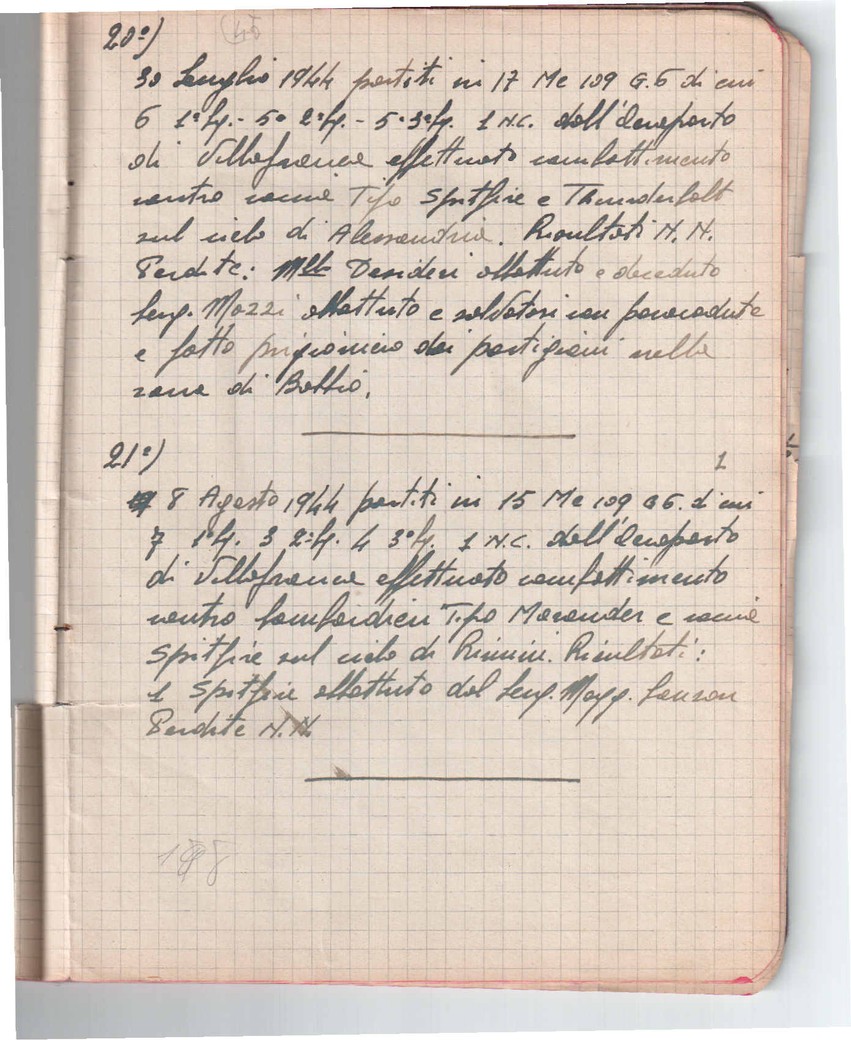 20°)
30 Luglio 1944 partiti in 17 Me 109 G.6 di cui
6 1°Sq.- 5° 2°Sq.- 5° 3°Sq. 1 N.C. dall'Aeroporto
di Villafranca effettuato combattimento
contro caccia Tipo Spitfire e Thunderbolt
sul cielo di Alessandria. Risultati N.N.
Perdite: Mllo Desideri abbattuto e deceduto
Serg. Mozzi abbattuto e salvatosi con paracadute
e fatto prigioniero dai partigiani nella
zona di Bobbio.
21°)
1
8 Agosto 1944 partiti in 15 Me 109 G6. di cui
7 1°Sq. 3 2°Sq. 4 3°Sq. 1 N.C. dall'Aeroporto
di Villafranca effettuato combattimento
contro bombardieri Tipo Marauder e caccia
Spitfire sul cielo di Rimini. Risultati:
1 Spitfire abbattuto dal Serg. Magg.
Perdite N.N.